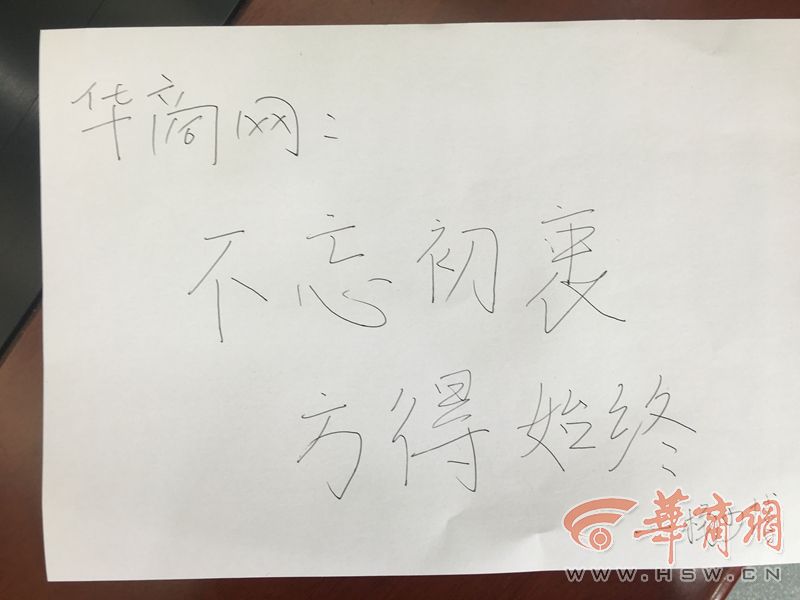 华商网：
不忘初衷
方得始终
華商網
WWW.HSW.CN